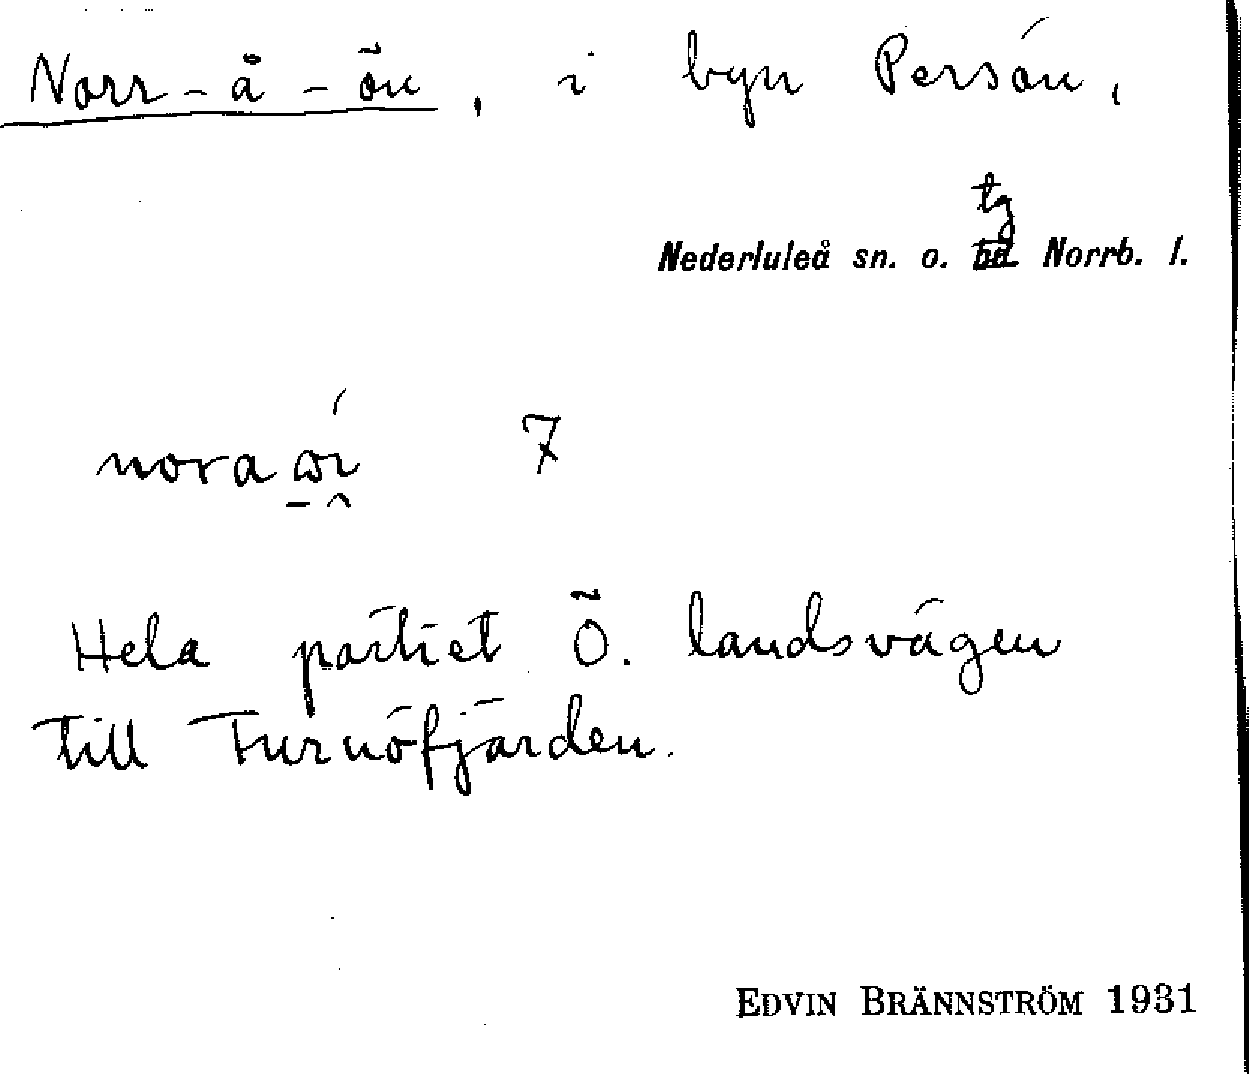 Norr-å-ön, i byn Persön,
tg
Nederluleå sn. o. hd Norrb. l.
7
Hela partiet Ö. landsvägen
till Furuöfjärden.
EDVIN BRÄNNSTRÖM 1931